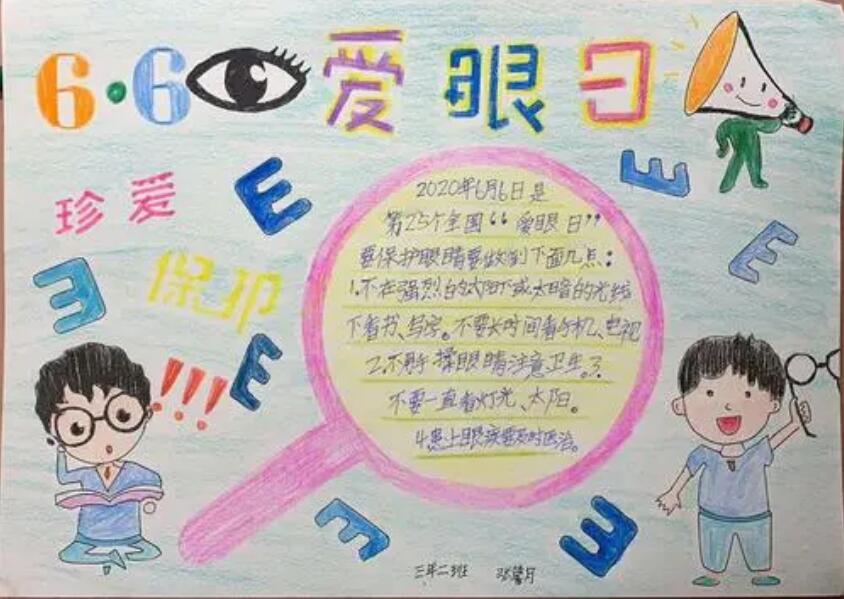 6·6 爱眼日
珍爱
保护
!!!
E
E
E
E
E
E
E
2020年6月6日是
第25个全国“爱眼日”
要保护眼睛要做到下面几点：
1.不在强烈的太阳下或太暗的光线
下看书、写字。不要长时间看手机、电视
2.不用手揉眼睛注意卫生。3.
不要一直看灯光、太阳。
4.患上眼疾要及时医治。
三年二班 张馨月